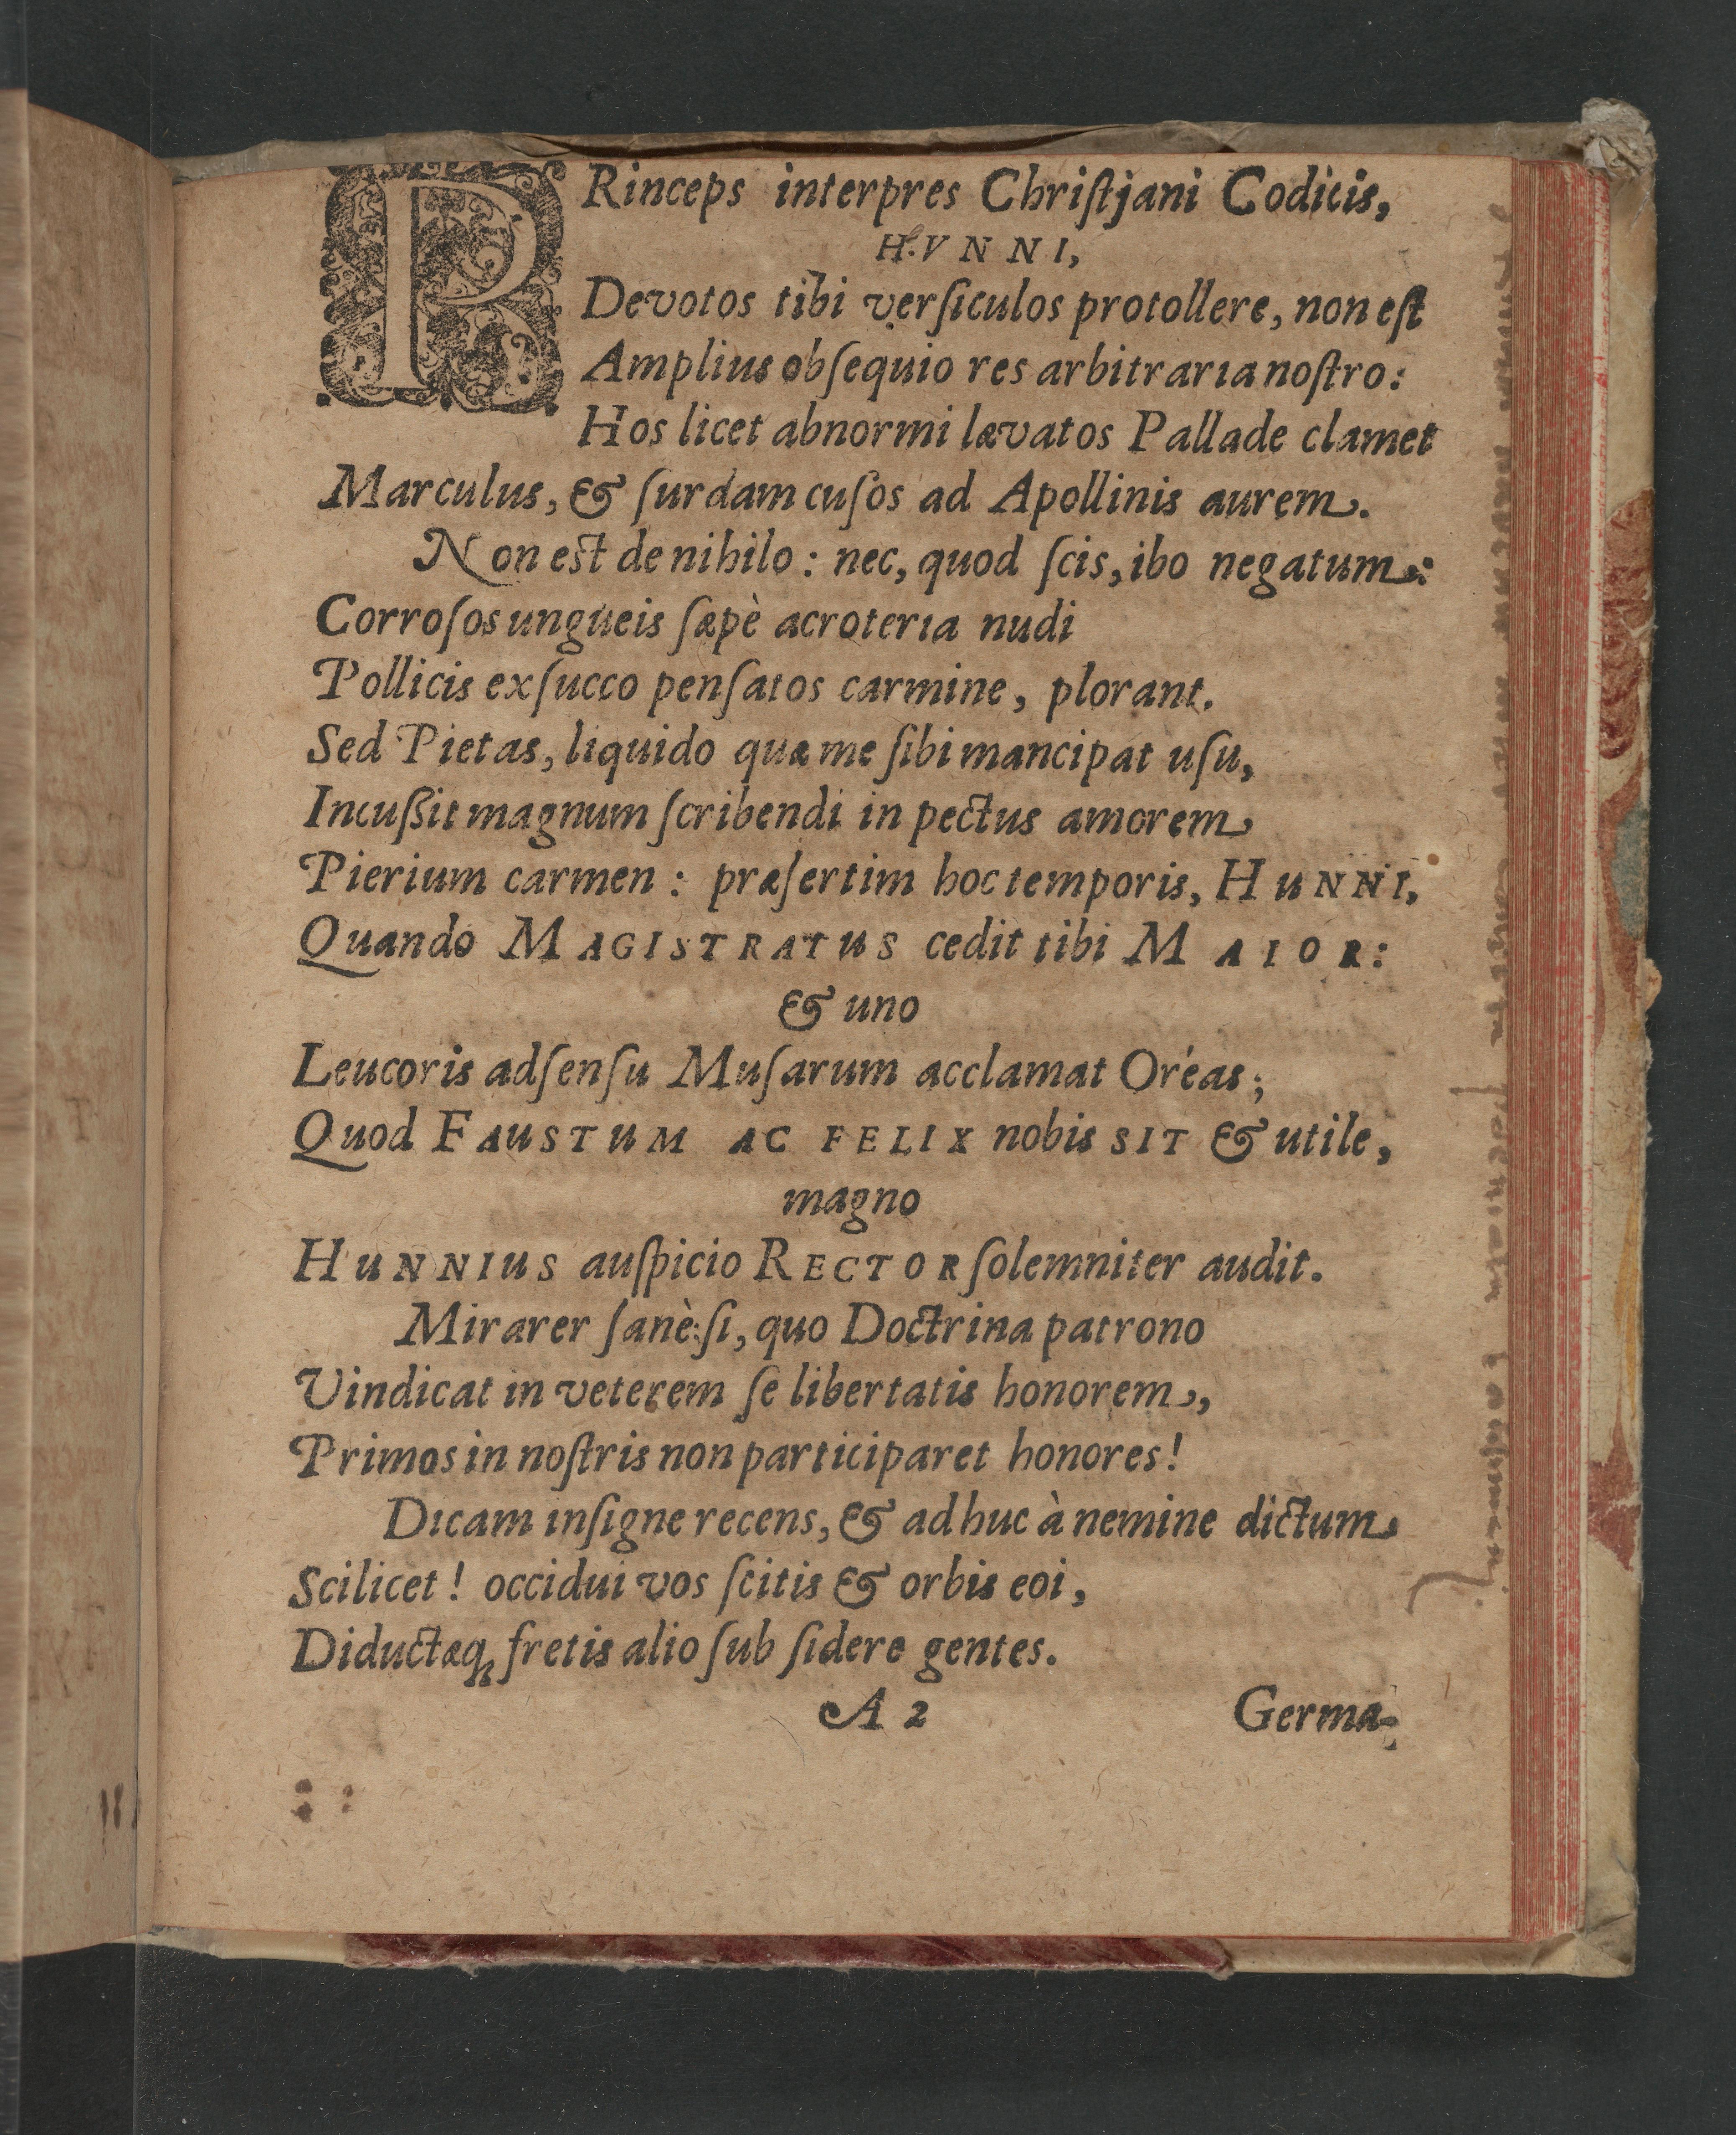 PRinceps interpres Chriſtjani Codicis,
HVNNI,
Devotos tibi verſiculos protollere, non eſt
Amplius obſequio res arbitraria noſtro:
Hos licet abnormi lævatos Pallade clamet
Marculus, & ſurdam cuſos ad Apollinis aurem.
Non est de nihilo: nec, quod ſcis, ibo negatum:
Corroſos ungueis ſæpè acroteria nudi
Pollicis exſucco penſatos carmine, plorant.
Sed Pietas, liquido quæ me ſibi mancipat uſu,
Incußit magnum ſcribendi in pectus amorem
Pierium carmen: præſertim hoc temporis, HuNNI,
Quando MAGISTRATuS cedit tibi MAIOR:
& uno
Leucoris adſenſu Muſarum acclamat Oréas;
Quod FAuSTuM AC FELIX nobis SIT & utile,
magno
HuNNIuS auſpicio RECTOR ſolemniter audit.
Mirarer ſanè: ſi, quo Doctrina patrono
Vindicat in veterem ſe libertatis honorem,
Primos in noſtris non participaret honores!
Dicam inſigne recens, & adhuc à nemine dictum
Scilicet! occidui vos ſcitis & orbis eoi,
Diductæq; fretis alio ſub ſidere gentes.
A 2 Germa-